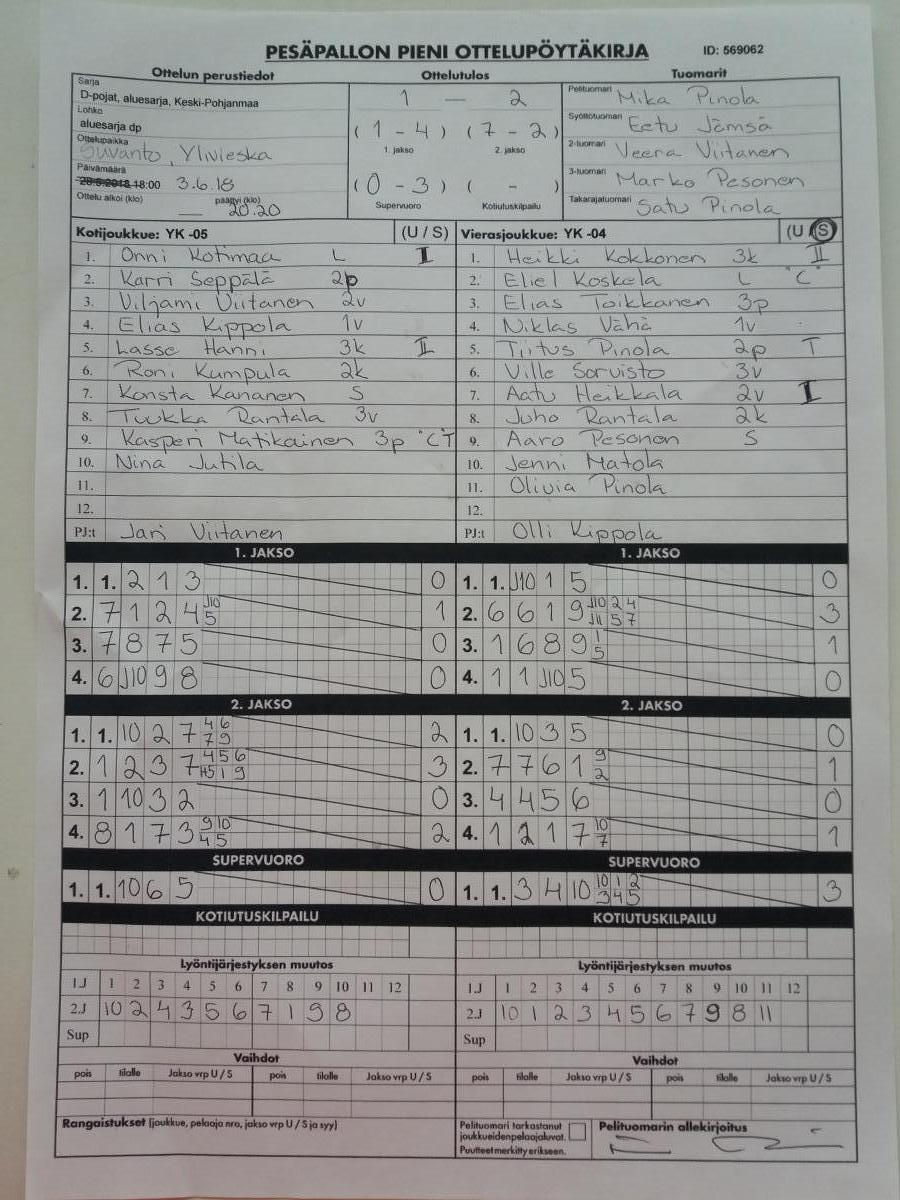 PESÄPALLON PIENI OTTELUPÖYTÄKIRJA ID: 569062
Ottelun perustiedot Ottelutulos Tuomarit
Sarja
D-pojat, aluesarja, Keski-Pohjanmaa
Lohko
aluesarja dp
Ottelupaikka
Suvanto, Ylivieska
Päivämäärä
18:00 3.6.18
Ottelu alkoi (klo) päättyi (klo)
— 20.20
1 — 2
( 1 - 4 ) ( 7 - 2 )
1. jakso 2. jakso
( 0 - 3 ) ( - )
Supervuoro Kotiutuskilpailu
Pelituomari Mika Pinola
Syöttötuomari Eetu Jämsä
2-tuomari Veera Viitanen
3-tuomari Marko Pesonen
Takarajatuomari Satu Pinola
Kotijoukkue: YK -05 (U / S)
1. Onni Kotimaa L I
2. Karri Seppälä 2p
3. Viljami Viitanen 2v
4. Elias Kippola 1v
5. Lasse Hanni 3k II
6. Roni Kumpula 2k
7. Konsta Kananen S
8. Tuukka Rantala 3v
9. Kasperi Matikainen 3p "C" T
10. Nina Jutila
11.
12.
PJ:t Jari Viitanen
Vierasjoukkue: YK -04 (U / S)
1. Heikki Kokkonen 3k II
2. Eliel Koskela L "C"
3. Elias Toikkanen 3p
4. Niklas Vähä 1v
5. Tiitus Pinola 2p T
6. Ville Sorvisto 3v
7. Aatu Heikkala 2v I
8. Juho Rantala 2k
9. Aaro Pesonen S
10. Jenni Matola
11. Olivia Pinola
12.
PJ:t Olli Kippola
1. JAKSO
1. 1. 2 1 3 0
2. 7 1 2 4 J10 5 1
3. 7 8 7 5 0
4. 6 J10 9 8 0
1. JAKSO
1. 1. J10 1 5 0
2. 6 6 1 9 J10 2 4 J11 5 7 3
3. 1 6 8 9 1 5 1
4. 1 1 J10 5 0
2. JAKSO
1. 1. 10 2 7 4 6 7 9 2
2. 1 2 3 7 4 5 6 1 9 3
3. 1 10 3 2 0
4. 8 1 7 3 9 10 4 5 2
2. JAKSO
1. 1. 10 3 5 0
2. 7 7 6 1 9 2 1
3. 4 4 5 6 0
4. 1 2 1 7 10 7 1
SUPERVUORO
1. 1. 10 6 5 0
SUPERVUORO
1. 1. 3 4 10 10 1 2 3 4 5 3
KOTIUTUSKILPAILU
KOTIUTUSKILPAILU
Lyöntijärjestyksen muutos
1.J 1 2 3 4 5 6 7 8 9 10 11 12
2.J 10 2 4 3 5 6 7 1 9 8
Sup
Lyöntijärjestyksen muutos
1.J 1 2 3 4 5 6 7 8 9 10 11 12
2.J 10 1 2 3 4 5 6 7 9 8 11
Sup
Vaihdot
pois tilalle Jakso vrp U / S pois tilalle Jakso vrp U / S
Vaihdot
pois tilalle Jakso vrp U / S pois tilalle Jakso vrp U / S
Rangaistukset (joukkue, pelaaja nro, jakso vrp U / S ja syy)
Pelituomari tarkastanut
joukkueidenpelaajaluvat.
Puutteet merkitty erikseen.
Pelituomarin allekirjoitus